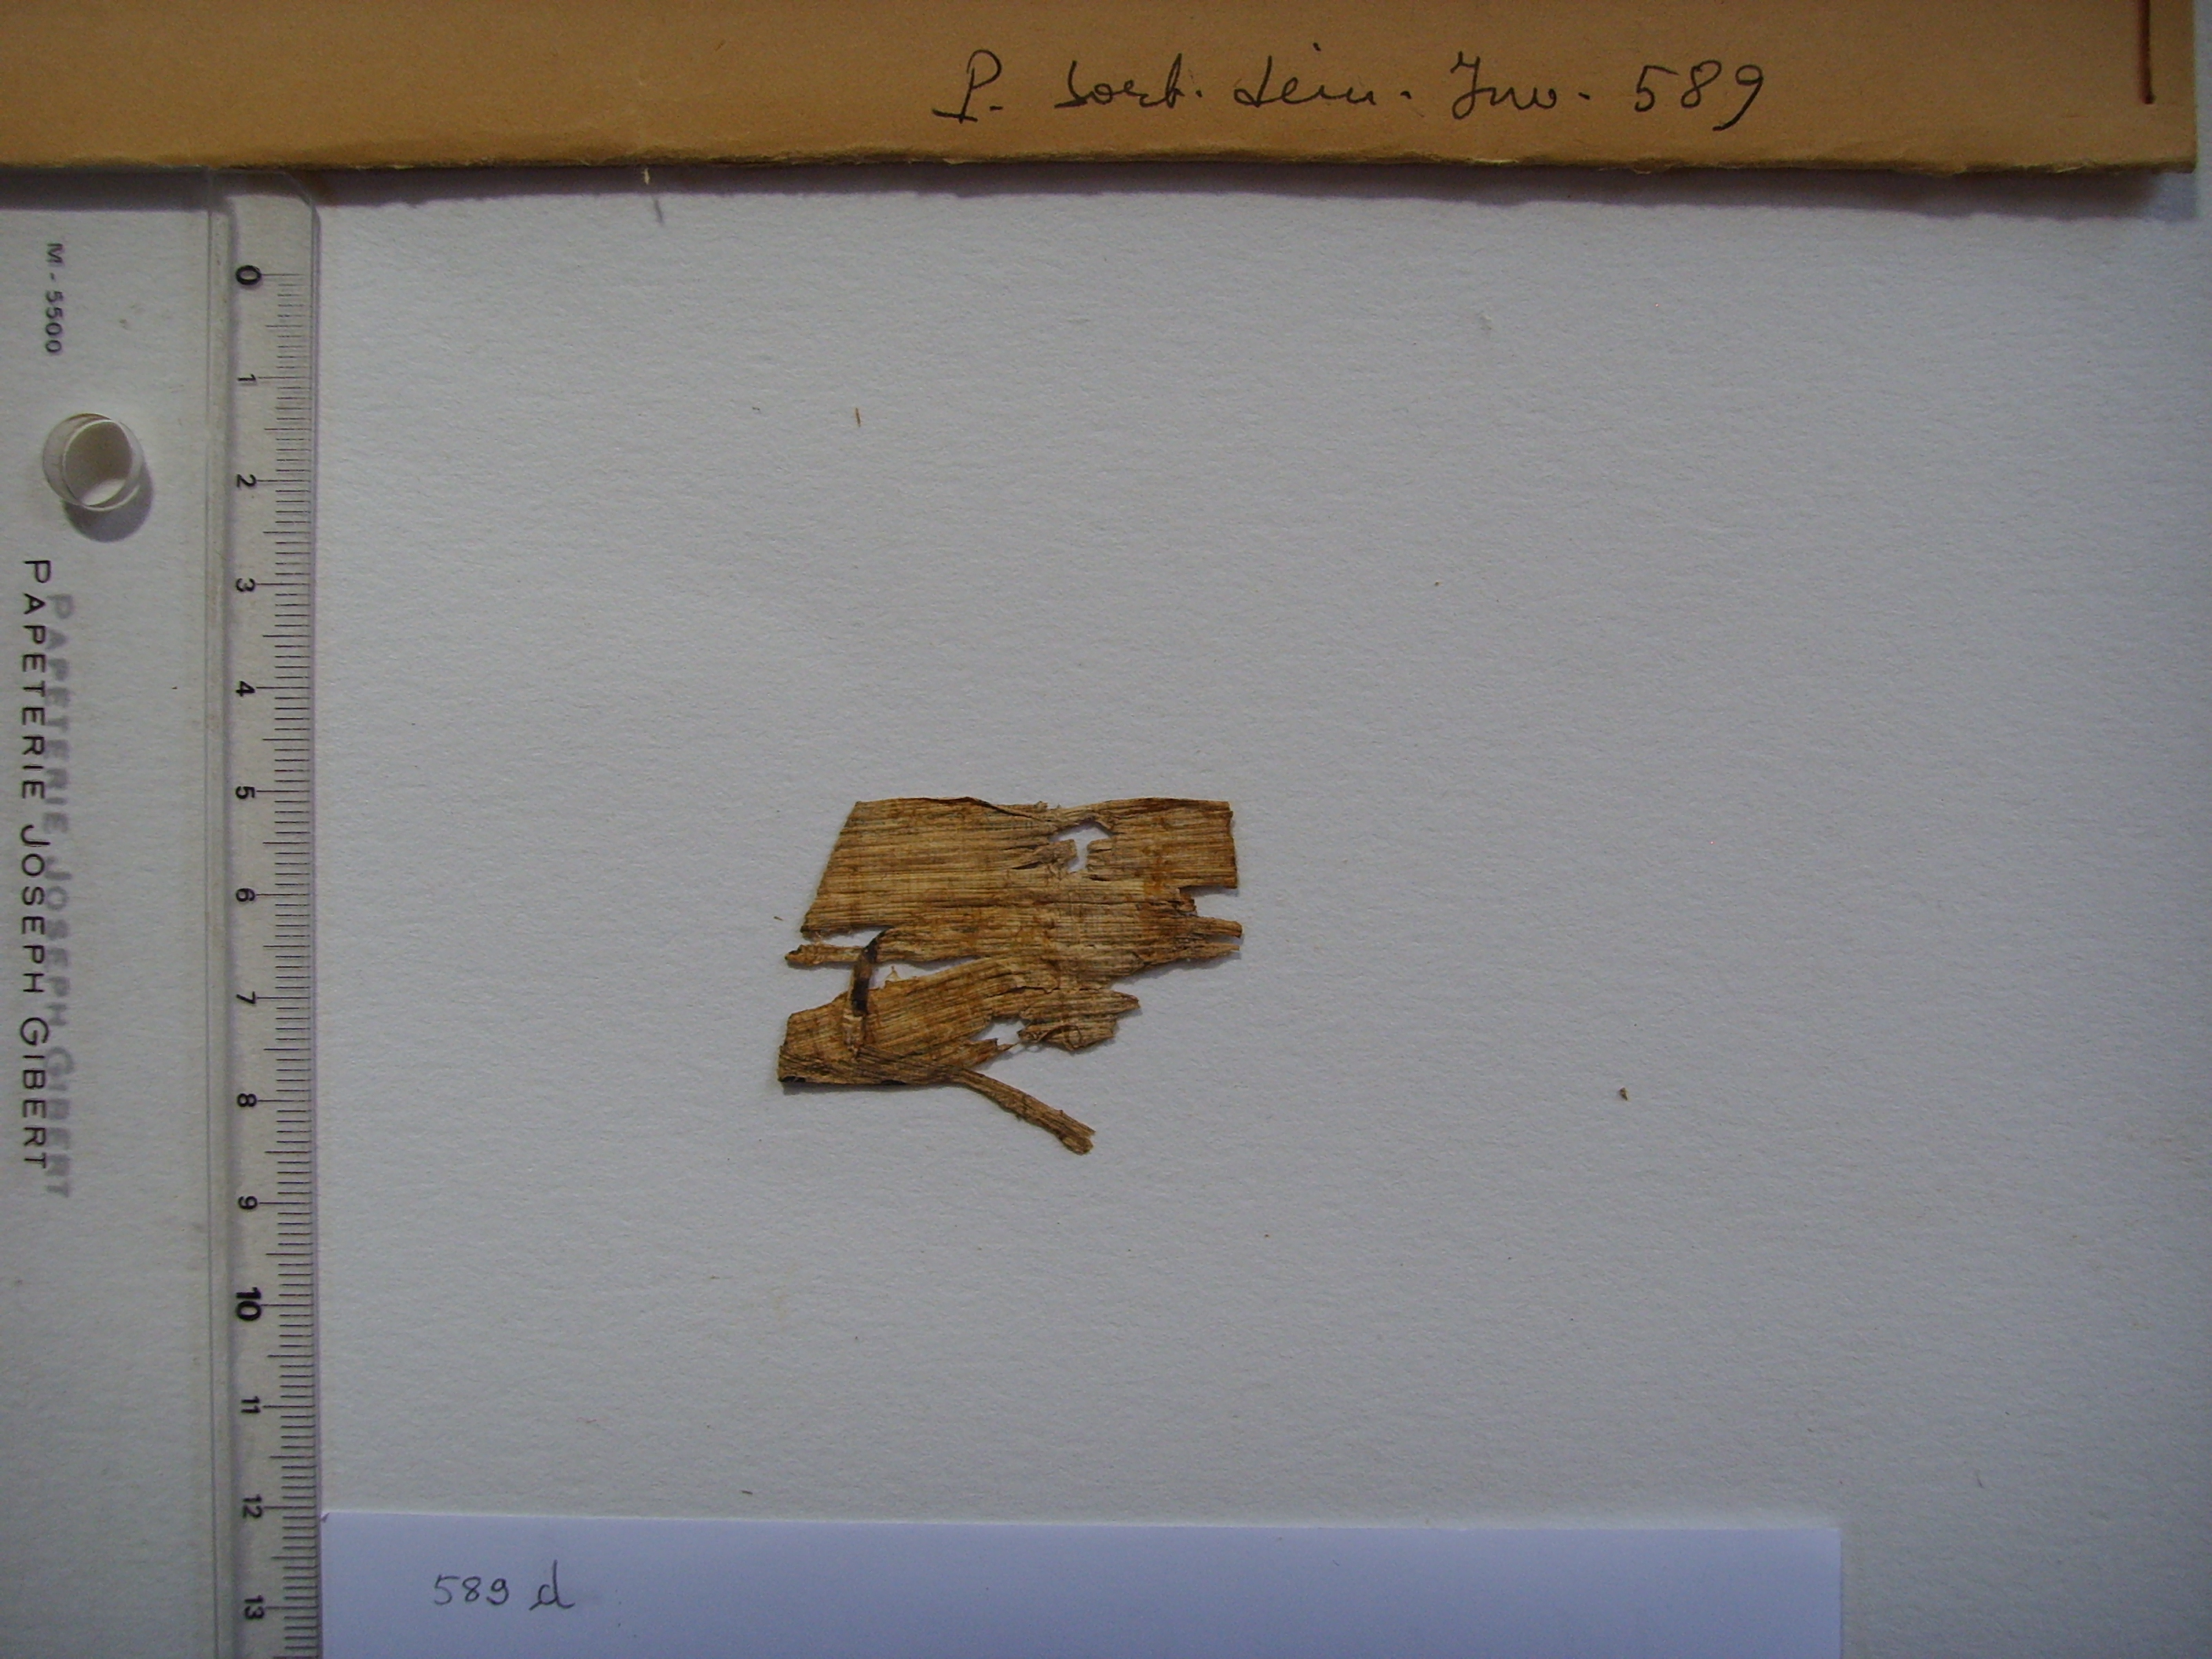 P. Sorb. dém. Inv. 589
M-5500
PAPETERIE JOSEPH GIBERT
0
1
2
3
4
5
6
7
8
9
10
11
12
13
589 d